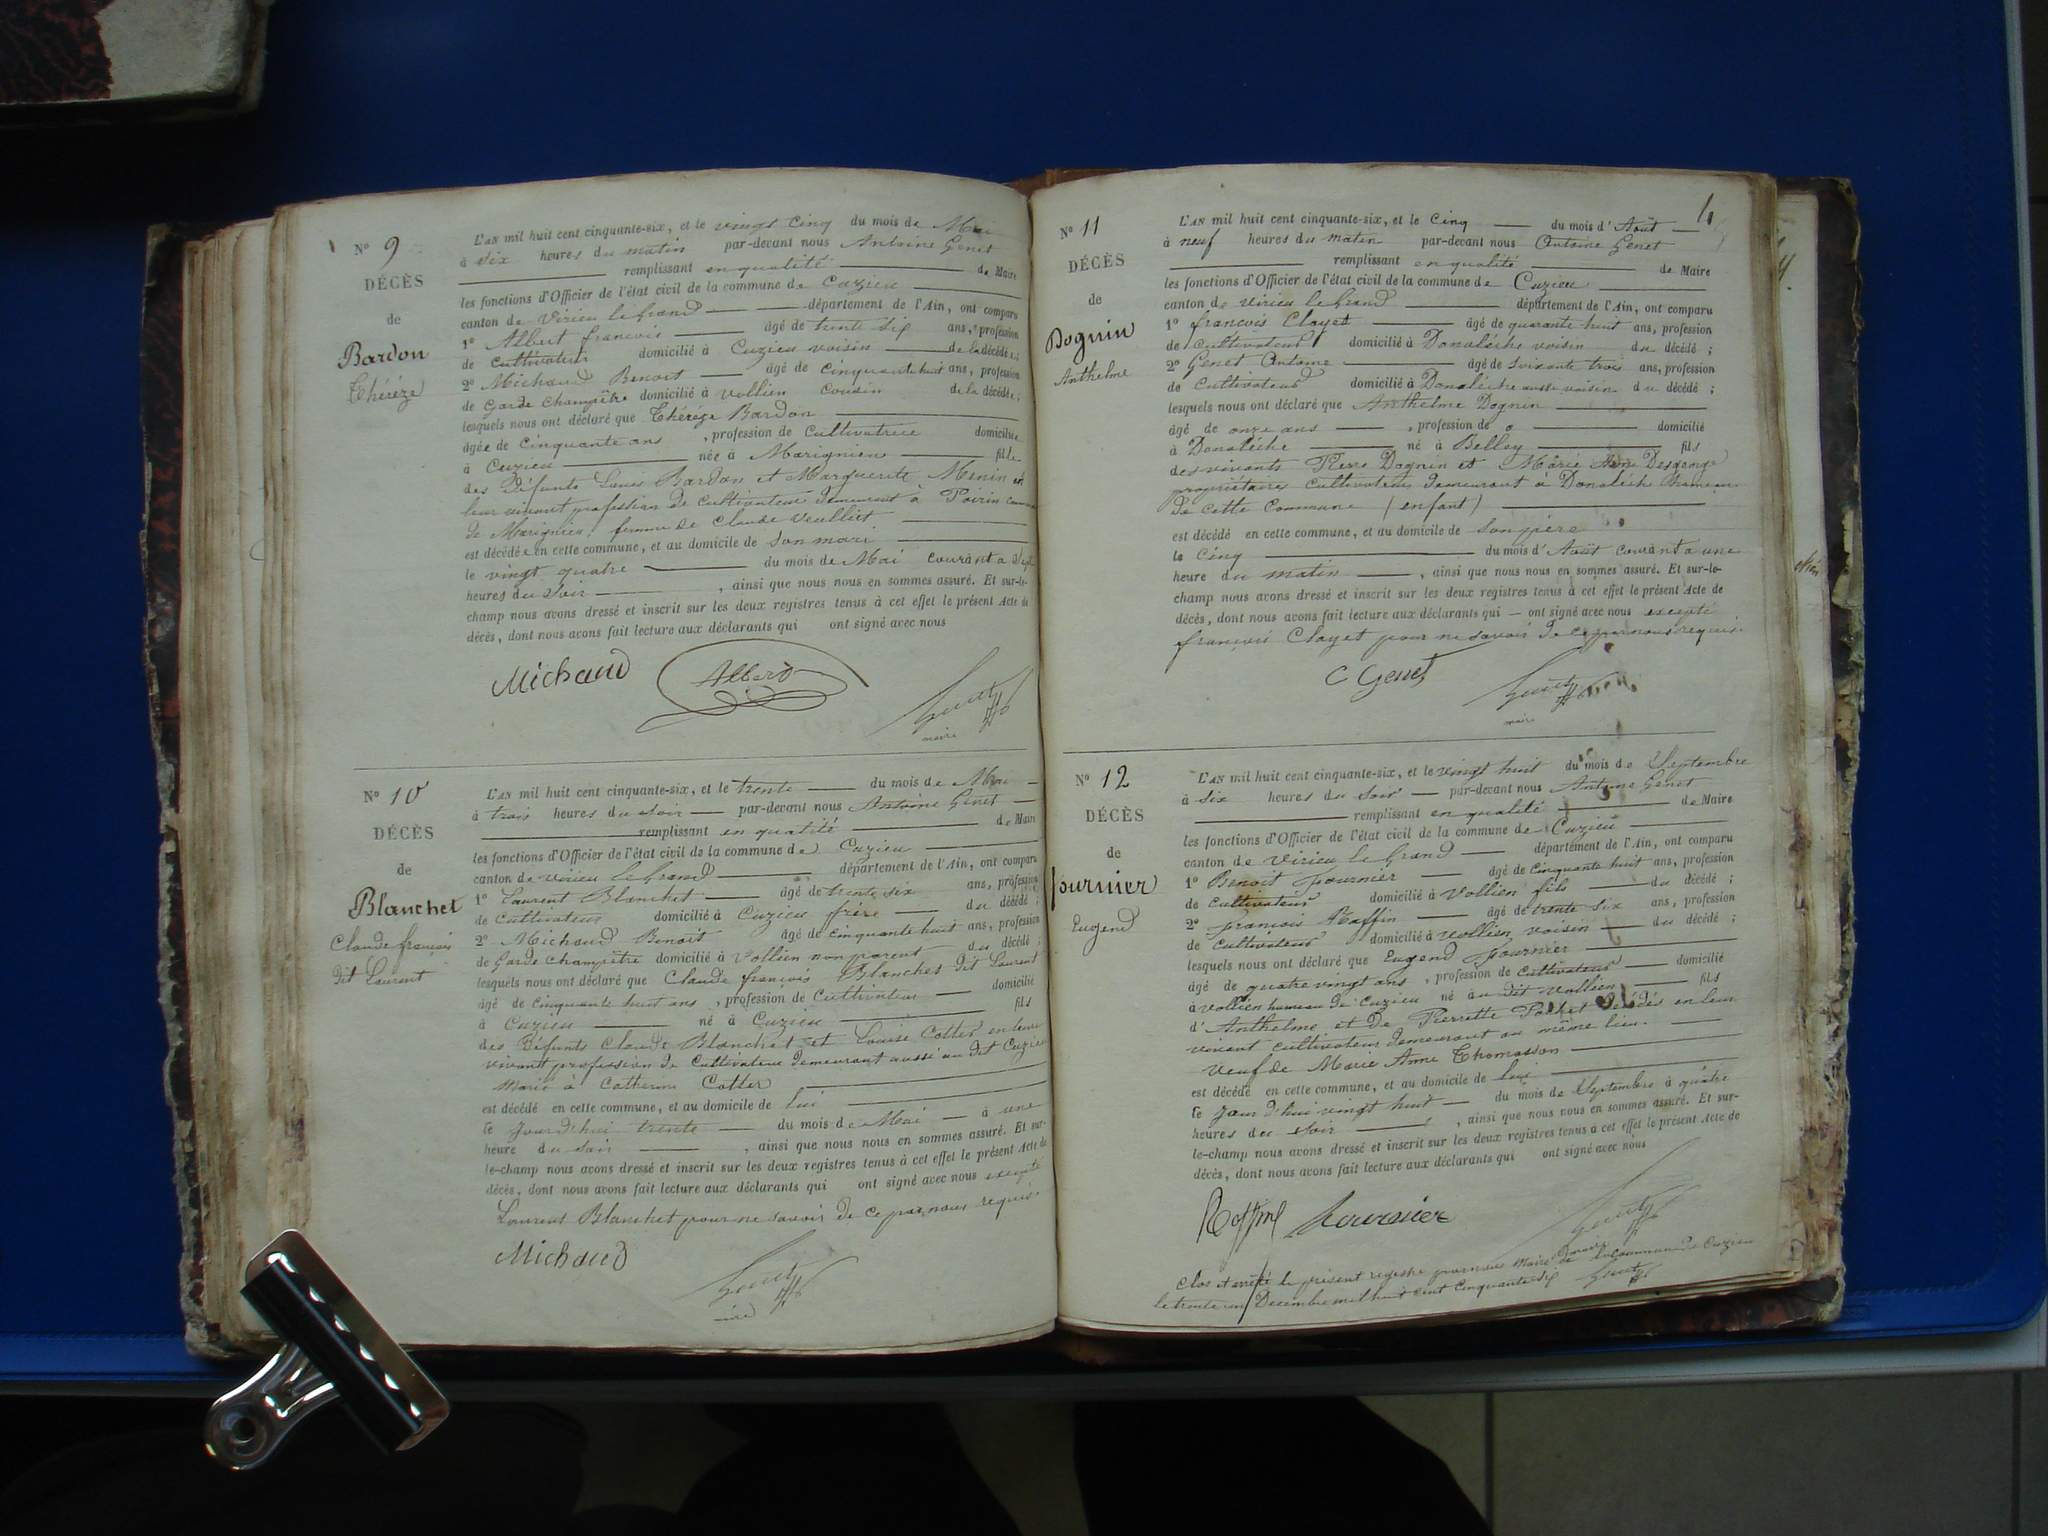 N° 9
DÉCÈS
de
Bardon
Thérèze
L'AN mil huit cent cinquante-six, et le vingt cinq du mois de Mai
à Six heures du matin par-devant nous Antoine Genet
remplissant en qualité de Maire
les fonctions d'Officier de l'état civil de la commune de Cuzieu
canton de Virieu le Grand département de l'Ain, ont comparu
1° Albert françois âgé de trente Six ans, profession
de Cultivateur domicilié à Cuzieu voisin de la décédée ;
2° Michaud Benoit âgé de Cinquante huit ans, profession
de Garde Champêtre domicilié à Vollien Cousin de la décédée ;
lesquels nous ont déclaré que Thérèze Bardon
âgée de Cinquante ans , profession de Cultivatrice domiciliée
à Cuzieu née à Marignieu fille
des Défunts Louis Bardon et Marguerite Menin en
leur vivant profession de Cultivateur demeurant à Poirin Commune
de Marignieu, femme de Claude Veulliet
est décédée en cette commune, et au domicile de Son mari
le vingt quatre du mois de Mai Courant a Sept
heures du Soir , ainsi que nous nous en sommes assuré. Et sur-le-
champ nous avons dressé et inscrit sur les deux registres tenus à cet effet le présent Acte de
décès, dont nous avons fait lecture aux déclarants qui ont signé avec nous
Michaud Albert Genet
maire
N° 10
DÉCÈS
de
Blanchet
Claude françois
dit Laurent
L'AN mil huit cent cinquante-six, et le trente du mois de Mai
à trois heures du Soir par-devant nous Antoine Genet
remplissant en qualité de Maire
les fonctions d'Officier de l'état civil de la commune de Cuzieu
canton de Virieu le Grand département de l'Ain, ont comparu
1° Laurent Blanchet âgé de trente Six ans, profession
de Cultivateur domicilié à Cuzieu frère du décédé ;
2° Michaud Benoit âgé de Cinquante huit ans, profession
de Garde Champêtre domicilié à Vollien non parent du décédé ;
lesquels nous ont déclaré que Claude françois Blanchet dit Laurent
âgé de Cinquante huit ans , profession de Cultivateur domicilié
à Cuzieu né à Cuzieu fils
des Défunts Claude Blanchet et Louise Cotter en leur
vivant profession de Cultivateur demeurant aussi au dit Cuzieu
Marié à Catherine Cotter
est décédé en cette commune, et au domicile de lui
le Jourd'hui trente du mois de Mai à une
heure du Soir , ainsi que nous nous en sommes assuré. Et sur-
le-champ nous avons dressé et inscrit sur les deux registres tenus à cet effet le présent Acte de
décès, dont nous avons fait lecture aux déclarants qui ont signé avec nous excepté
Laurent Blanchet pour ne savoir de ce par nous requis.
Michaud Genet
maire
4
N° 11
DÉCÈS
de
Dognin
Anthelme
L'AN mil huit cent cinquante-six, et le Cinq du mois d'Août
à neuf heures du matin par-devant nous Antoine Genet
remplissant en qualité de Maire
les fonctions d'Officier de l'état civil de la commune de Cuzieu
canton de Virieu le Grand département de l'Ain, ont comparu
1° françois Clayet âgé de quarante huit ans, profession
de Cultivateur domicilié à Donalèche voisin du décédé ;
2° Genet Antoine âgé de Soixante trois ans, profession
de Cultivateur domicilié à Donalèche aussi voisin du décédé ;
lesquels nous ont déclaré que Anthelme Dognin
âgé de onze ans , profession de o domicilié
à Donalèche né à Belley fils
des vivants Pierre Dognin et Marie Desgange
propriétaires Cultivateurs demeurant à Donalèche hameau
de cette Commune (enfant)
est décédé en cette commune, et au domicile de Son père
le Cinq du mois d'Août Courant a une
heure du matin , ainsi que nous nous en sommes assuré. Et sur-le-
champ nous avons dressé et inscrit sur les deux registres tenus à cet effet le présent Acte de
décès, dont nous avons fait lecture aux déclarants qui — ont signé avec nous excepté
françois Clayet pour ne savoir de ce par nous requis.
C Genet Genet
maire
N° 12
DÉCÈS
de
fournier
Eugend
L'AN mil huit cent cinquante-six, et le vingt huit du mois de Septembre
à Six heures du Soir par-devant nous Antoine Genet
remplissant en qualité de Maire
les fonctions d'Officier de l'état civil de la commune de Cuzieu
canton de Virieu le Grand département de l'Ain, ont comparu
1° Benoit fournier âgé de Cinquante huit ans, profession
de Cultivateur domicilié à Vollien fils du décédé ;
2° françois Raffin âgé de trente Six ans, profession
de Cultivateur domicilié à Vollien voisin du décédé ;
lesquels nous ont déclaré que Eugend fournier
âgé de quatre vingt ans , profession de Cultivateur domicilié
à Vollien hameau de Cuzieu né au dit Vollien fils
d'Anthelme et de Pierrette Pochet décédés en leur
vivant Cultivateur demeurant au même lieu.
Veuf de Marie Anne Thomasson
est décédé en cette commune, et au domicile de lui
le Jour d'hui vingt huit du mois de Septembre à quatre
heures du Soir , ainsi que nous nous en sommes assuré. Et sur-
le-champ nous avons dressé et inscrit sur les deux registres tenus à cet effet le présent Acte de
décès, dont nous avons fait lecture aux déclarants qui ont signé avec nous
Raffin fournier Genet
maire
Clos et arrêté le présent registre par nous Maire de la commune de Cuzieu
le trente un Décembre mil huit cent Cinquante Six Genet